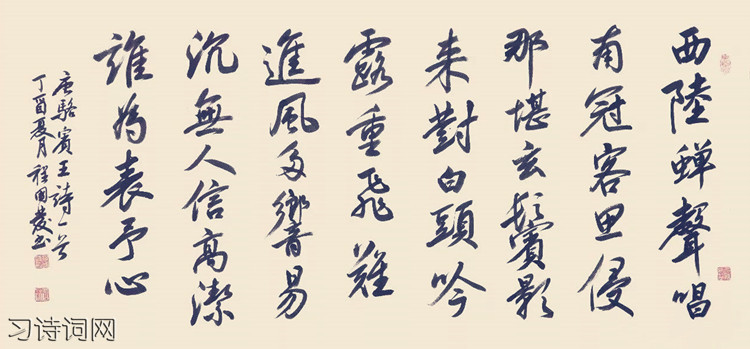 西陸蟬聲唱
南冠客思侵
那堪玄鬢影
来對白頭吟
露重飛難
進風多響易
沉無人信高潔
誰為表予心
唐駱賓王詩一首
丁酉夏月程国發书
习诗词网